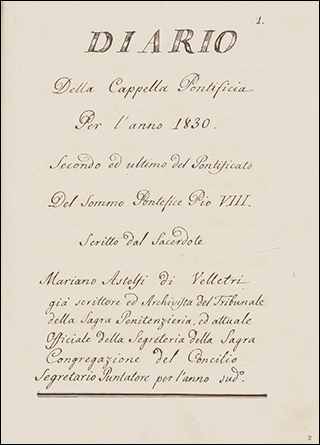 1.
DIARIO
Della Cappella Pontificia
Per l'anno 1830.
Secondo ed ultimo del Pontificato
Del Sommo Pontefice Pio VIII.
Scritto dal Sacerdote
Mariano Astolfi di Velletri
già scrittore ed Archivista del Tribunale
della Sagra Penitenzieria, ed attuale
Officiale della Segreteria della Sagra
Congregazione del Concilio
Segretario Puntatore per l'anno sudº.
2